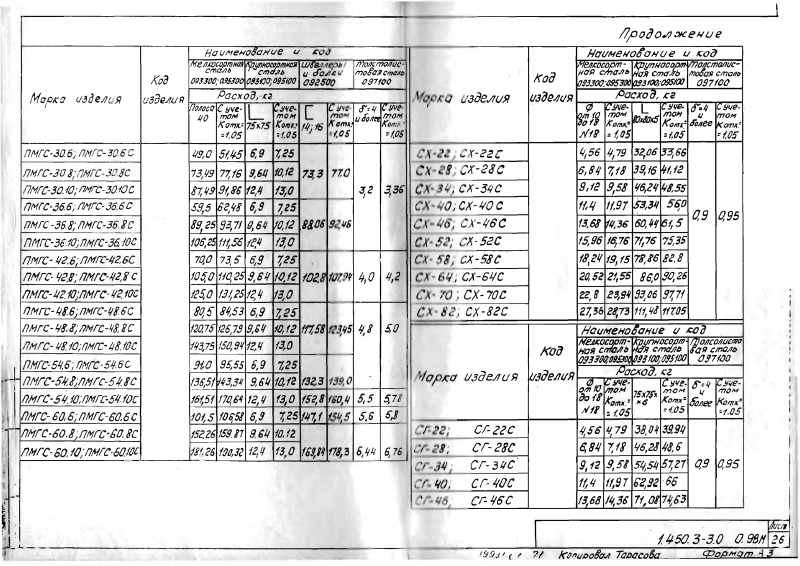 Продолжение
Наименование и код
Марка изделия
Код изделия
Мелкосортная сталь 093300;095300
Крупносортная сталь 093100;095100
Швеллеры и балки 092500
Толстолистовая сталь 097100
Расход, кг
Полоса 40
С учетом Котх.=1.05
75х75
С учетом Котх.=1.05
14; 16
С учетом Котх.=1.05
δ=4 и более
С учетом Котх.=1.05
ПМГС-30.6; ПМГС-30.6С 49,0 51,45 6,9 7,25
ПМГС-30.8; ПМГС-30.8С 73,49 77,16 9,64 10,12 73,3 77,0
ПМГС-30.10; ПМГС-30.10С 87,49 91,86 12,4 13,0 3,2 3,36
ПМГС-36.6; ПМГС-36.6С 59,5 62,48 6,9 7,25
ПМГС-36.8; ПМГС-36.8С 89,25 93,71 9,64 10,12 88,06 92,46
ПМГС-36.10; ПМГС-36.10С 106,25 111,56 12,4 13,0
ПМГС-42.6; ПМГС-42.6С 70,0 73,5 6,9 7,25
ПМГС-42.8; ПМГС-42.8С 105,0 110,25 9,64 10,12 102,8 107,94 4,0 4,2
ПМГС-42.10; ПМГС-42.10С 125,0 131,25 12,4 13,0
ПМГС-48.6; ПМГС-48.6С 80,5 84,53 6,9 7,25
ПМГС-48.8; ПМГС-48.8С 120,75 126,79 9,64 10,12 117,58 123,45 4,8 5,0
ПМГС-48.10; ПМГС-48.10С 143,75 150,94 12,4 13,0
ПМГС-54.6; ПМГС-54.6С 91,0 95,55 6,9 7,25
ПМГС-54.8; ПМГС-54.8С 136,51 143,34 9,64 10,12 132,3 139,0
ПМГС-54.10; ПМГС-54.10С 161,51 170,64 12,4 13,0 152,8 160,4 5,5 5,78
ПМГС-60.6; ПМГС-60.6С 101,5 106,58 6,9 7,25 147,1 154,5 5,6 5,8
ПМГС-60.8; ПМГС-60.8С 152,26 159,87 9,64 10,12
ПМГС-60.10; ПМГС-60.10С 181,26 190,32 12,4 13,0 169,84 178,3 6,44 6,76
Наименование и код
Марка изделия
Код изделия
Мелкосортная сталь 093300;095300
Крупносортная сталь 093100;095100
Толстолистовая сталь 097100
Расход, кг
Ø от 10 до 18 N18
С учетом Котх.=1.05
80х80х5
С учетом Котх.=1.05
δ=4 и более
С учетом Котх.=1.05
СХ-22; СХ-22С 4,56 4,79 32,06 33,66
СХ-28; СХ-28С 6,84 7,18 39,16 41,12
СХ-34; СХ-34С 9,12 9,58 46,24 48,55
СХ-40; СХ-40С 11,4 11,97 53,34 56,0 0,9 0,95
СХ-46; СХ-46С 13,68 14,36 60,44 61,5
СХ-52; СХ-52С 15,96 16,76 71,76 75,35
СХ-58; СХ-58С 18,24 19,15 78,86 82,8
СХ-64; СХ-64С 20,52 21,55 86,0 90,26
СХ-70; СХ-70С 22,8 23,94 93,06 97,71
СХ-82; СХ-82С 27,36 28,73 111,48 117,05
Наименование и код
Марка изделия
Код изделия
Мелкосортная сталь 093300;095300
Крупносортная сталь 093100;095100
Толстолистовая сталь 097100
Расход, кг
Ø от 10 до 18 N18
С учетом Котх.=1.05
75х75х6
С учетом Котх.=1.05
δ=4 и более
С учетом Котх.=1.05
СГ-22; СГ-22С 4,56 4,79 38,04 39,94
СГ-28; СГ-28С 6,84 7,18 46,28 48,6
СГ-34; СГ-34С 9,12 9,58 54,54 57,27 0,9 0,95
СГ-40; СГ-40С 11,4 11,97 62,92 66
СГ-46; СГ-46С 13,68 14,36 71,08 74,63
1.450.3-3.0 0.98М
Лист 26
Копировал Тарасова
Формат А3